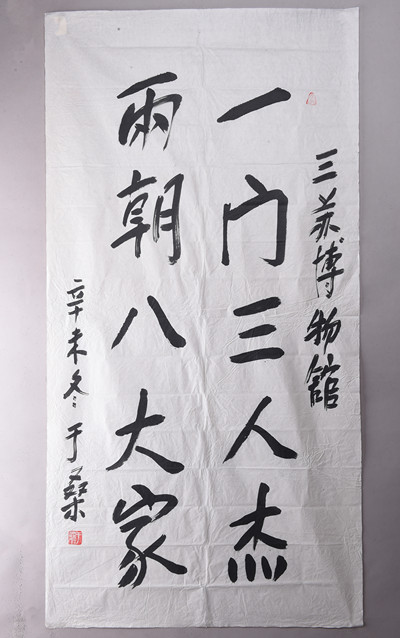 三苏博物馆
一门三人杰
兩朝八大家
辛未冬于桑